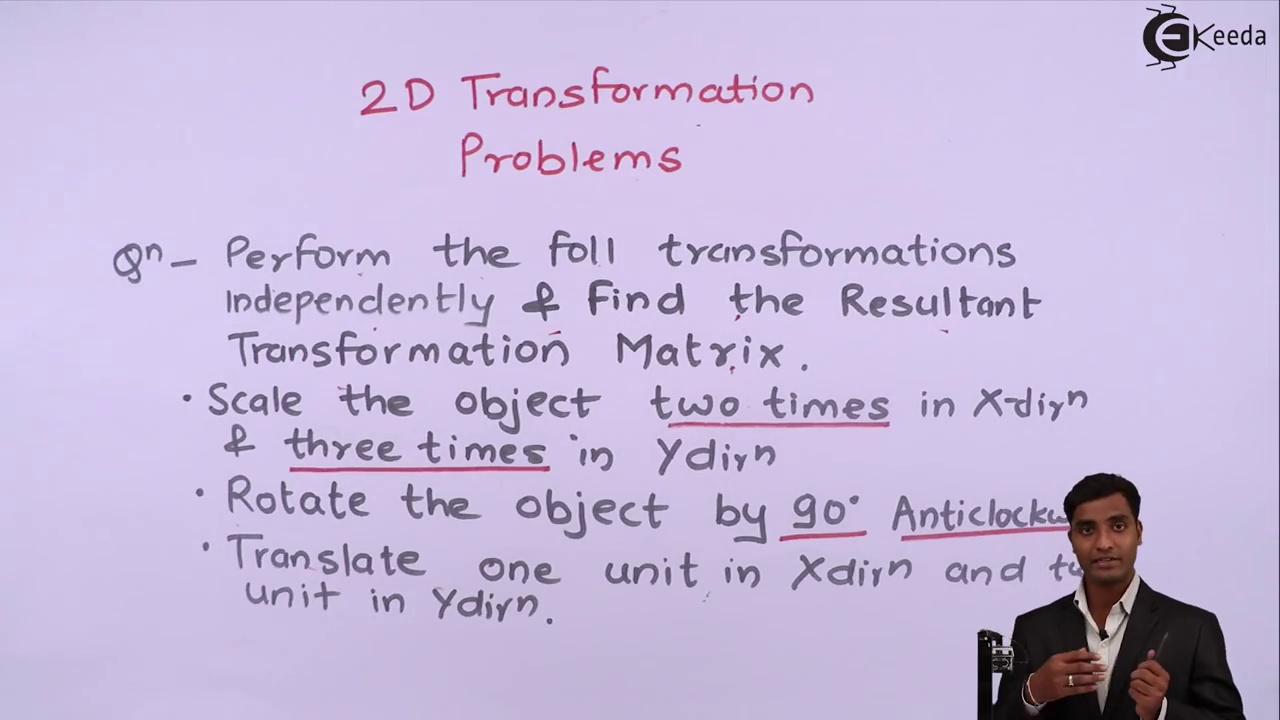 Keeda
2D Transformation
Problems
Qn - Perform the foll transformations
independently & Find the Resultant
Transformation Matrix.
• Scale the object two times in X-dirn
& three times in Ydirn
• Rotate the object by 90° 
• Translate one unit in Xdirn and
unit in Ydirn.